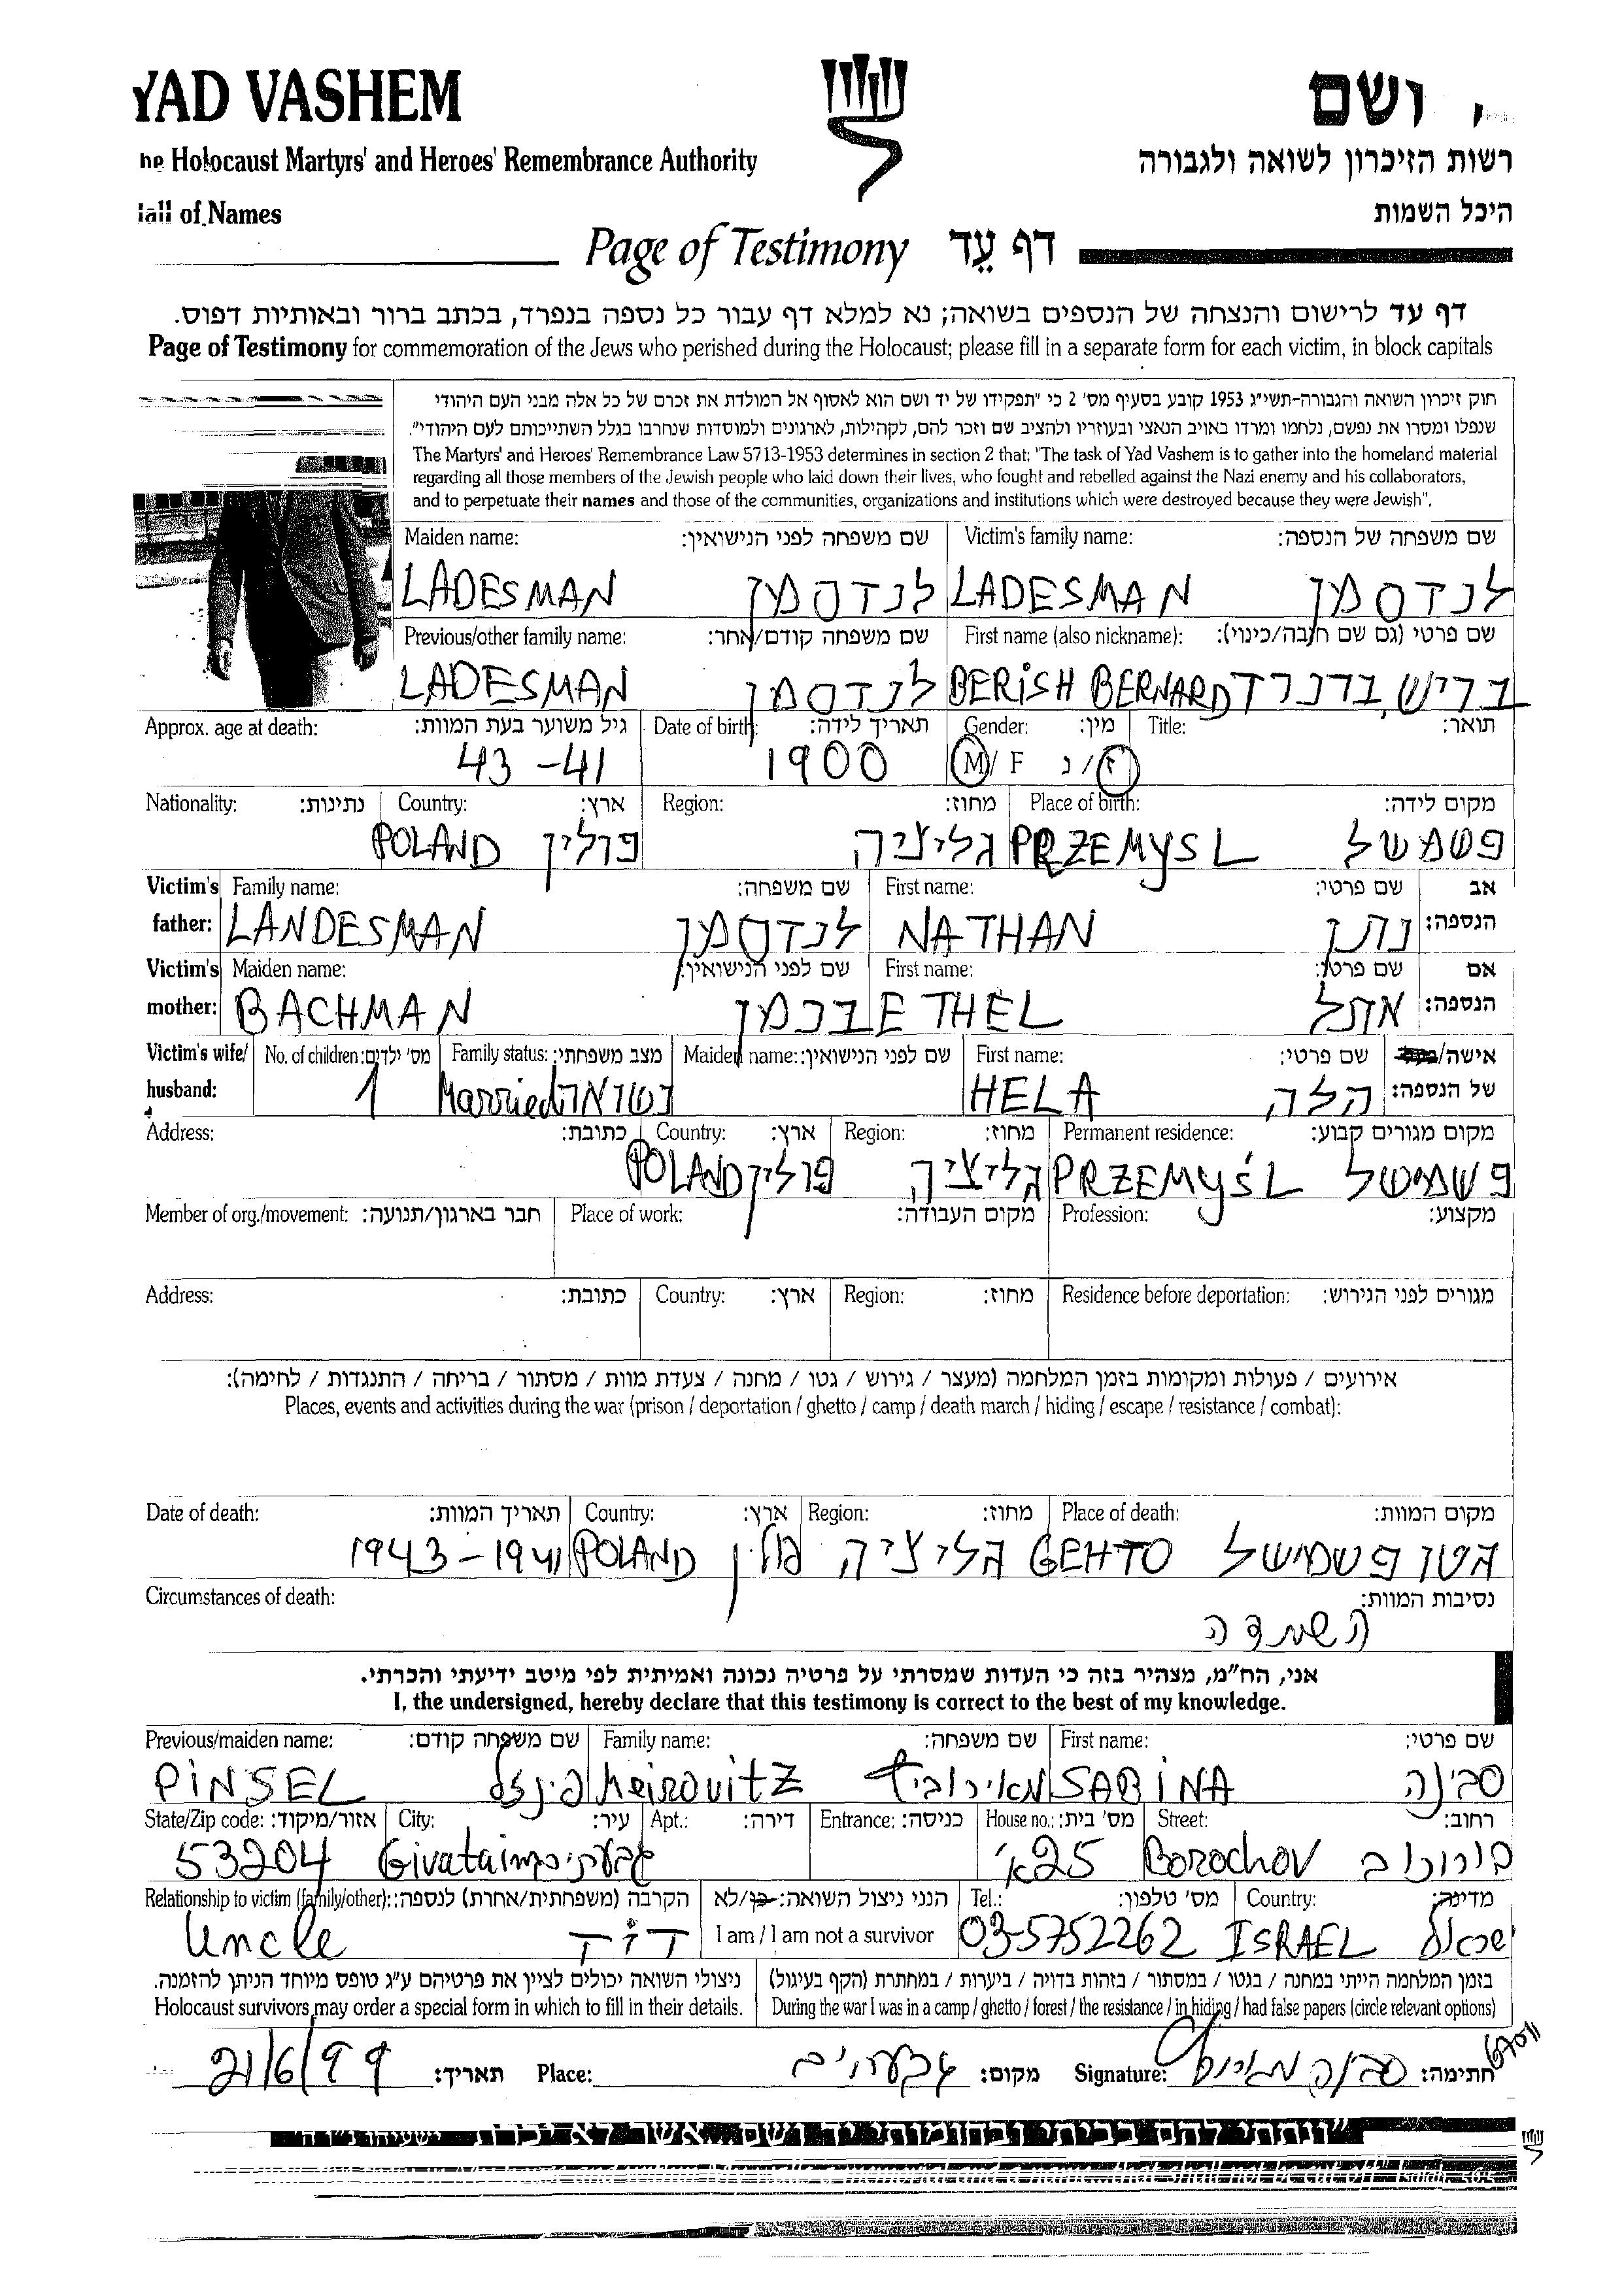 YAD VASHEM
ושם
he Holocaust Martyrs' and Heroes' Remembrance Authority
רשות הזיכרון לשואה ולגבורה
Hall of Names
היכל השמות
Page of Testimony דף עֵד
דף עד לרישום והנצחה של הנספים בשואה; נא למלא דף עבור כל נספה בנפרד, בכתב ברור ובאותיות דפוס.
Page of Testimony for commemoration of the Jews who perished during the Holocaust; please fill in a separate form for each victim, in block capitals
חוק זיכרון השואה והגבורה-תשי״ג 1953 קובע בסעיף מס׳ 2 כי ״תפקידו של יד ושם הוא לאסוף אל המולדת את זכרם של כל אלה מבני העם היהודי
שנפלו ומסרו את נפשם, נלחמו ומרדו באויב הנאצי ובעוזריו ולהציב שם וזכר להם, לקהילות, לארגונים ולמוסדות שנחרבו בגלל השתייכותם לעם היהודי״.
The Martyrs' and Heroes' Remembrance Law 5713-1953 determines in section 2 that: "The task of Yad Vashem is to gather into the homeland material
regarding all those members of the Jewish people who laid down their lives, who fought and rebelled against the Nazi enemy and his collaborators,
and to perpetuate their names and those of the communities, organizations and institutions which were destroyed because they were Jewish".
Maiden name: שם משפחה לפני הנישואין: Victim's family name: שם משפחה של הנספה:
LADESMAN לנדסמן LADESMAN לנדסמן
Previous/other family name: שם משפחה קודם/אחר: First name (also nickname): שם פרטי (גם שם חיבה/כינוי):
LADESMAN לנדסמן BERISH BERNARD בריש, ברנרד
Approx. age at death: גיל משוער בעת המוות: Date of birth: תאריך לידה: Gender: מין: Title: תואר:
43 - 41 1900 M/ F ז/נ
Nationality: נתינות: Country: ארץ: Region: מחוז: Place of birth: מקום לידה:
POLAND פולין גליציה PRZEMYSL פשמשל
Victim's father: Family name: שם משפחה: First name: שם פרטי: אב הנספה:
LANDESMAN לנדסמן NATHAN נתן
Victim's mother: Maiden name: שם לפני הנישואין: First name: שם פרטי: אם הנספה:
BACHMAN בכמן ETHEL אתל
Victim's wife/ husband: No. of children: מס׳ ילדים: Family status: מצב משפחתי: Maiden name: שם לפני הנישואין: First name: שם פרטי: אישה/ של הנספה:
1 Married נשואה HELA הלה
Address: כתובת: Country: ארץ: Region: מחוז: Permanent residence: מקום מגורים קבוע:
POLAND פולין גליציה PRZEMYŚL פשמישל
Member of org./movement: חבר בארגון/תנועה: Place of work: מקום העבודה: Profession: מקצוע:
Address: כתובת: Country: ארץ: Region: מחוז: Residence before deportation: מגורים לפני הגירוש:
אירועים / פעולות ומקומות בזמן המלחמה (מעצר / גירוש / גטו / מחנה / צעדת מוות / מסתור / בריחה / התנגדות / לחימה):
Places, events and activities during the war (prison / deportation / ghetto / camp / death march / hiding / escape / resistance / combat):
Date of death: תאריך המוות: Country: ארץ: Region: מחוז: Place of death: מקום המוות:
1943 - 1941 POLAND פולין גליציה GEHTO גטו פשמישל
Circumstances of death: נסיבות המוות:
השמדה
אני, הח״מ, מצהיר בזה כי העדות שמסרתי על פרטיה נכונה ואמיתית לפי מיטב ידיעתי והכרתי.
I, the undersigned, hereby declare that this testimony is correct to the best of my knowledge.
Previous/maiden name: שם משפחה קודם: Family name: שם משפחה: First name: שם פרטי:
PINSEL פינזל Meirovitz מאירוביץ SABINA סבינה
State/Zip code: אזור/מיקוד: City: עיר: Apt.: דירה: Entrance: כניסה: House no.: מס׳ בית: Street: רחוב:
53204 Givataim גבעתיים 25א׳ Borochov בורוכוב
Relationship to victim (family/other): הקרבה (משפחתית/אחרת) לנספה: הנני ניצול השואה: כן/לא Tel.: מס׳ טלפון: Country: מדינה:
Uncle דוד I am / I am not a survivor 03-5752262 ISRAEL ישראל
ניצולי השואה יכולים לציין את פרטיהם ע״ג טופס מיוחד הניתן להזמנה. בזמן המלחמה הייתי במחנה / בגטו / במסתור / בזהות בדויה / ביערות / במחתרת (הקף בעיגול)
Holocaust survivors may order a special form in which to fill in their details. During the war I was in a camp / ghetto / forest / the resistance / in hiding / had false papers (circle relevant options)
21/6/99 תאריך: Place: גבעתיים מקום: Signature: סבינה חתימה: